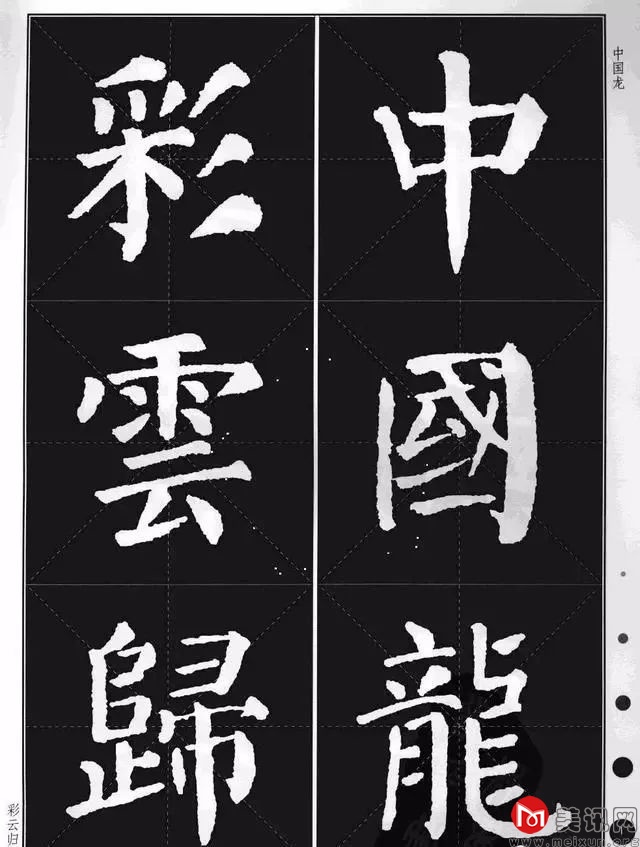 中国龙
中國龍
彩雲歸
彩云归
美讯网
www.meixun.org